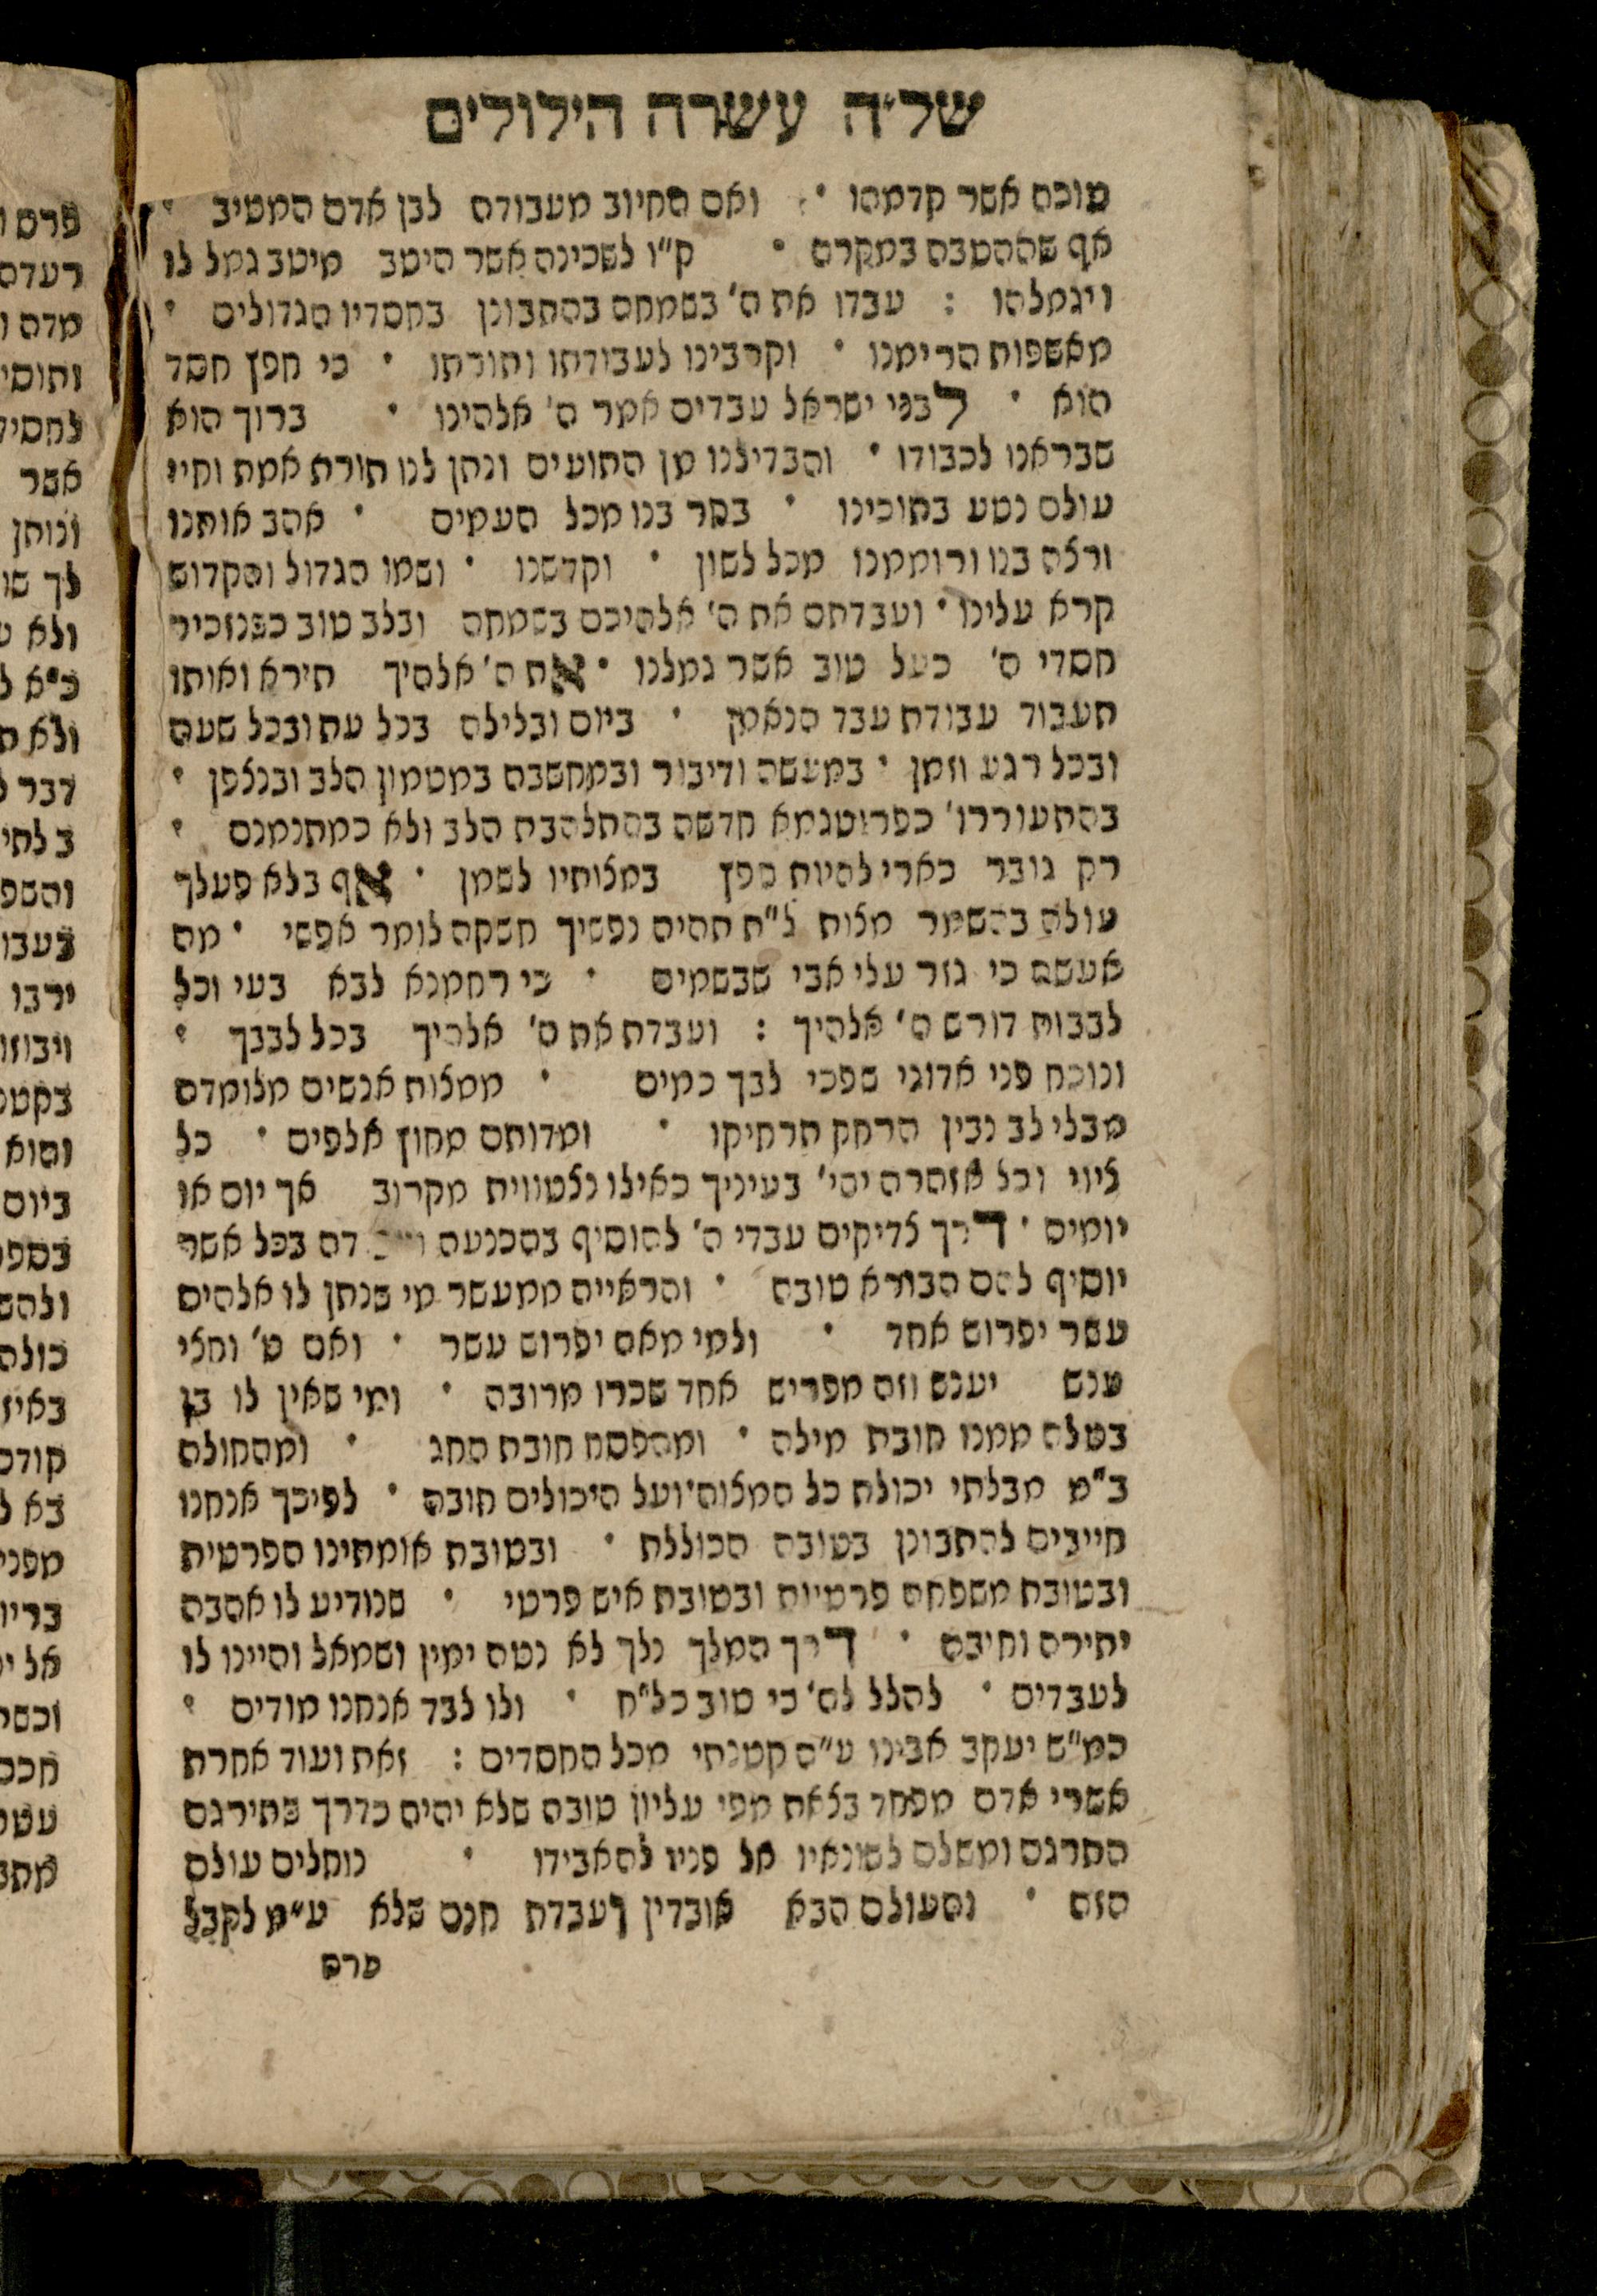 של״ה עשרה הילולים
טובה אשר קדמהו • ואם תחיוב מעבודה לבן אדם המטיב •
אף שההטבה במקרה • ק״ו לשכינה אשר היטב מיטב גמל לו
ויגמלהו : עבדו את ה׳ בשמחה בהתבונן בחסדיו הגדולים •
מאשפות הרימנו • וקרבינו לעבודתו ותורתו • כי חפץ חסד
הוא • לבני ישראל עבדים אמר ה׳ אלהינו • ברוך הוא
שבראנו לכבודו • והבדילנו מן התועים ונתן לנו תורת אמת וחיי
עולם נטע בתוכינו • בחר בנו מכל העמים • אהב אותנו
ורצה בנו ורוממנו מכל לשון • וקדשנו • ושמו הגדול והקדוש
קרא עלינו • ועבדתם את ה׳ אלהיכם בשמחה ובלב טוב כשנזכיר
חסדי ה׳ כעל טוב אשר גמלנו • את ה׳ אלהיך תירא ואותו
תעבוד עבודת עבד הנאמן • ביום ובלילה בכל עת ובכל שעה
ובכל רגע וזמן • במעשה ודיבור ובמחשבה במטמון הלב ובנצפן •
בהתעוררו׳ כפרוטגמא חדשה בהתלהבת הלב ולא כמתנמנם •
רק גובר כארי להיות חפץ במצותיו לשמן • אף בלא פעלך
עולה בהשמר מצות ל״ת תהיה נפשיך חשקה לומר אפשי • מה
אעשה כי גזר עלי אבי שבשמים • כי רחמנא לבא בעי וכל
לבבות דורש ה׳ אלהיך : ועבדת את ה׳ אלהיך בכל לבבך •
ונוכח פני אדוני שפכי לבך כמים • ממצות אנשים מלומדה
מבלי לב נבין הרחק תרחיקו • ומדותם מחוץ אלפים • כל
ציווי וכל אזהרה יהי׳ בעיניך כאילו נצטווית מקרוב אך יום או
יומים • דרך צדיקים עבדי ה׳ להוסיף בהכנעה דה בכל אשר
יוסיף להם הבורא טובה • והראייה ממעשר מי שנתן לו אלהים
עשר יפרוש אחד • ולמי מאה יפרוש עשר • ואם ט׳ וחצי
ענש יענש וזה מפריש אחד שכרו מרובה • ומי שאין לו בן
בטלה ממנו חובת מילה • ומהפסח חובת החג • ומהחולה
ב״מ מבלתי יכולת כל המצות ועל היכולים חובה • לפיכך אנחנו
חייבים להתבונן בטובה הכוללת • ובטובת אומתינו הפרטית
ובטובת משפחה פרטיות ובטובת איש פרטי • שנודיע לו אהבה
יתירה וחיבה • דרך המלך נלך לא נטה ימין ושמאל והיינו לו
לעבדים • להלל לה׳ כי טוב כל״ח • ולו לבד אנחנו מודים •
כמ״ש יעקב אבינו ע״ה קטנתי מכל החסדים : זאת ועוד אחרת
אשרי אדם מפחד בצאת מפי עליון טובה שלא יהיה כדרך שתירגם
התרגם ומשלם לשונאיו אל פניו להאבידו • נוחלים עולם
הזה • ומעולם הבא אובדין ועבדת חנם שלא ע״מ לקבל
פרס